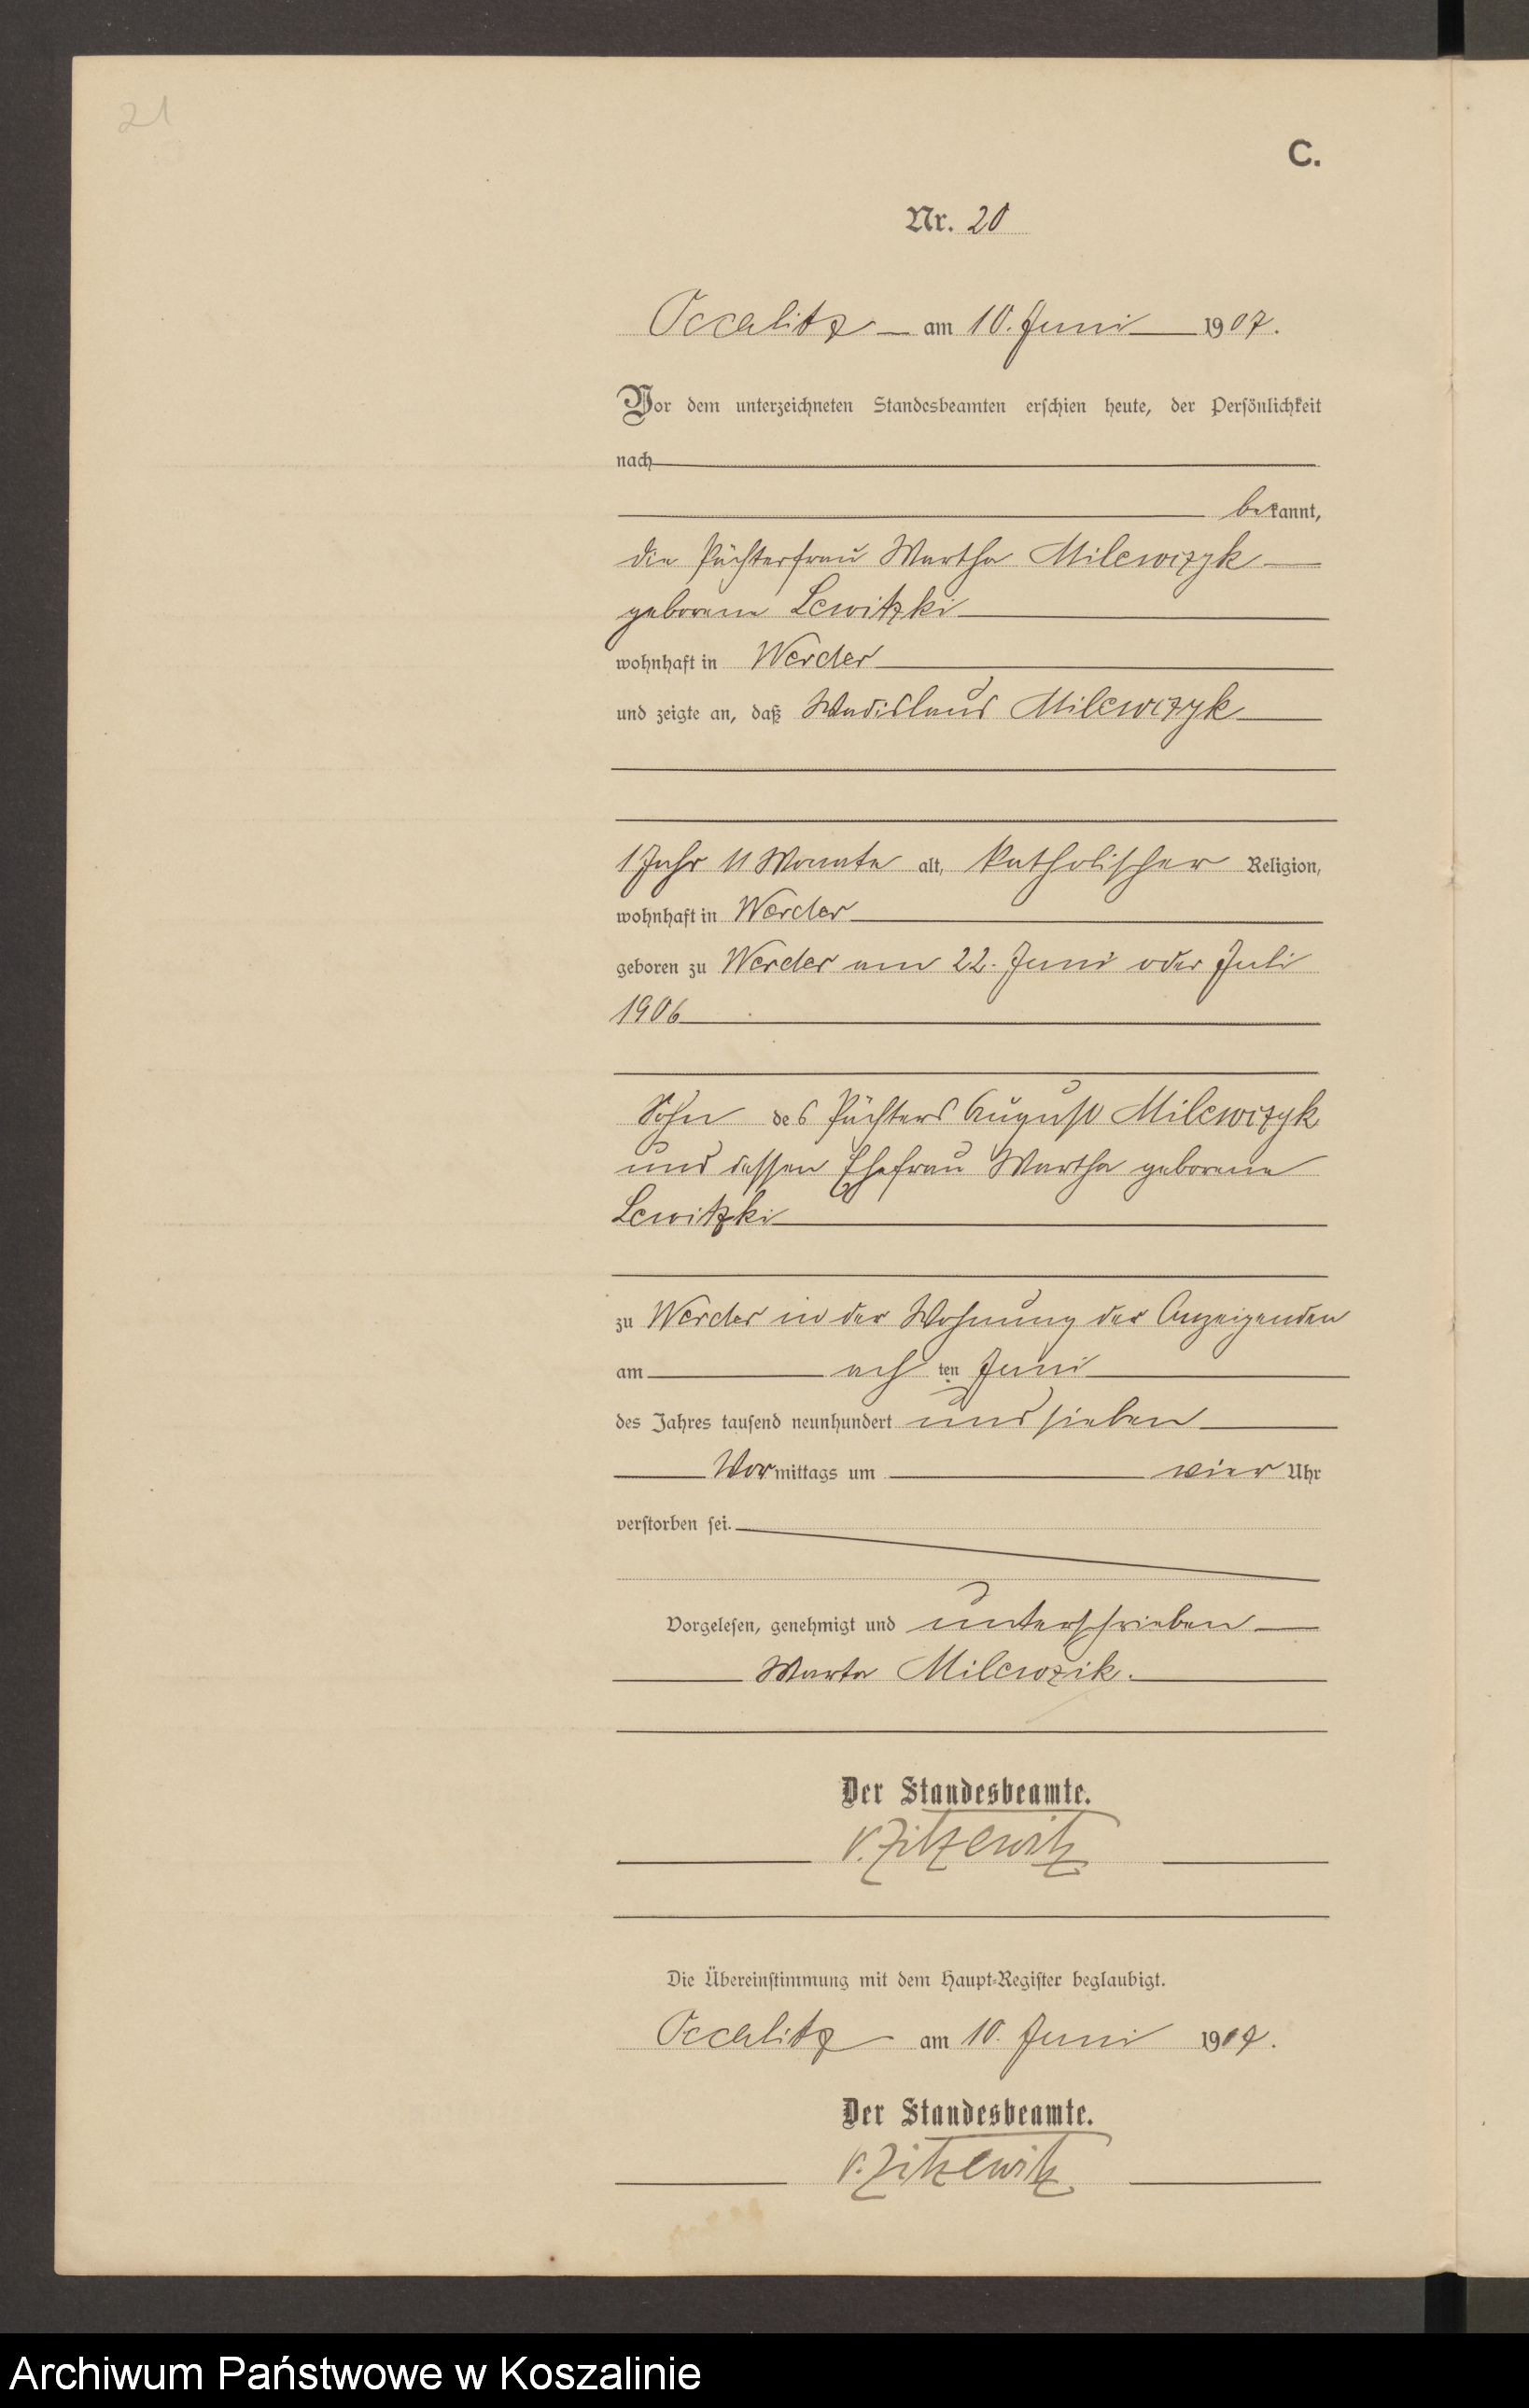 21
C.
Nr. 20
Occalitz am 10. Juni 1907.
Vor dem unterzeichneten Standesbeamten erschien heute, der Persönlichkeit
nach
bekannt,
die Pächterfrau Martha Milewczyk
geborene Lewitzki
wohnhaft in Werder
und zeigte an, daß Wadislaus Milewczyk
1 Jahr 11 Monate alt, katholischer Religion,
wohnhaft in Werder
geboren zu Werder am 22. Juni oder Juli
1906
Sohn des Pächters August Milewczyk
und dessen Ehefrau Martha geborene
Lewitzki
zu Werder in der Wohnung der Anzeigenden
am achten Juni
des Jahres tausend neunhundert und sieben
Vormittags um vier Uhr
verstorben sei.
Vorgelesen, genehmigt und unterschrieben
Marta Milewzik.
Der Standesbeamte.
v. Zitzewitz
Die Übereinstimmung mit dem Haupt-Register beglaubigt.
Occalitz am 10. Juni 1907.
Der Standesbeamte.
v. Zitzewitz
Archiwum Państwowe w Koszalinie